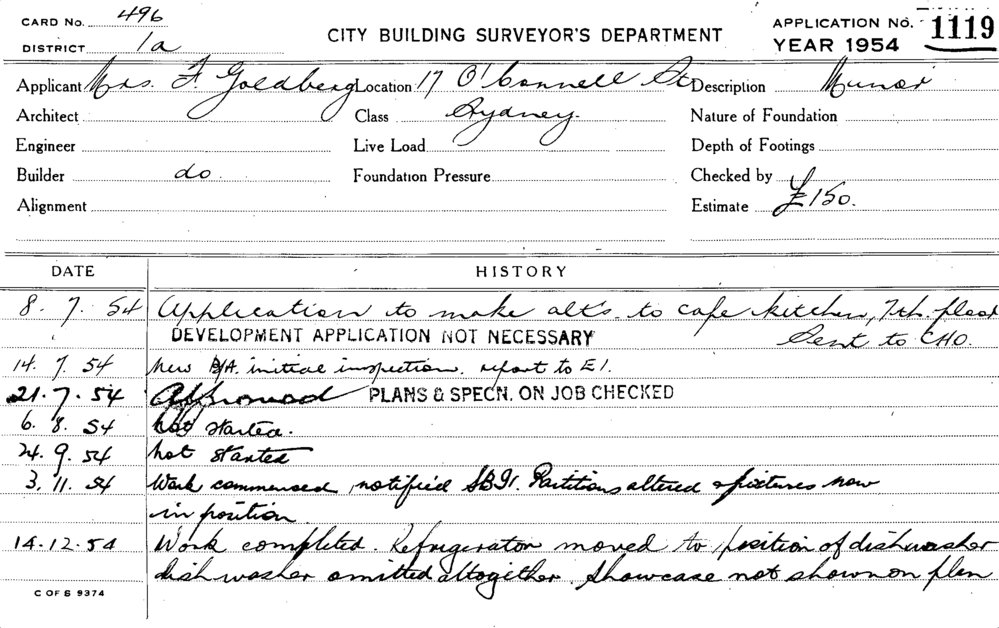 CARD No. 496
DISTRICT 1a
CITY BUILDING SURVEYOR'S DEPARTMENT
APPLICATION No. 1119
YEAR 1954
Applicant Mrs. F Goldberg Location 17 O'Connell St Description Minor
Architect Class Sydney. Nature of Foundation
Engineer Live Load Depth of Footings
Builder do Foundation Pressure Checked by
Alignment Estimate £150.
DATE HISTORY
8. 7. 54 Application to make alts. to cafe kitchen, 7th. floor
DEVELOPMENT APPLICATION NOT NECESSARY Sent to CHO.
14. 7. 54 New B/A. initial inspection. report to E1.
21. 7. 54 Approved PLANS & SPECN. ON JOB CHECKED
6. 8. 54 Not started.
24. 9. 54 Not started
3. 11. 54 Work commenced, notified Partitions altered & fixtures now
in position.
14. 12. 54 Work completed. Refrigerator moved to position of dishwasher
dishwasher omitted altogether. Showcase not shown on plan
C OF S 9374